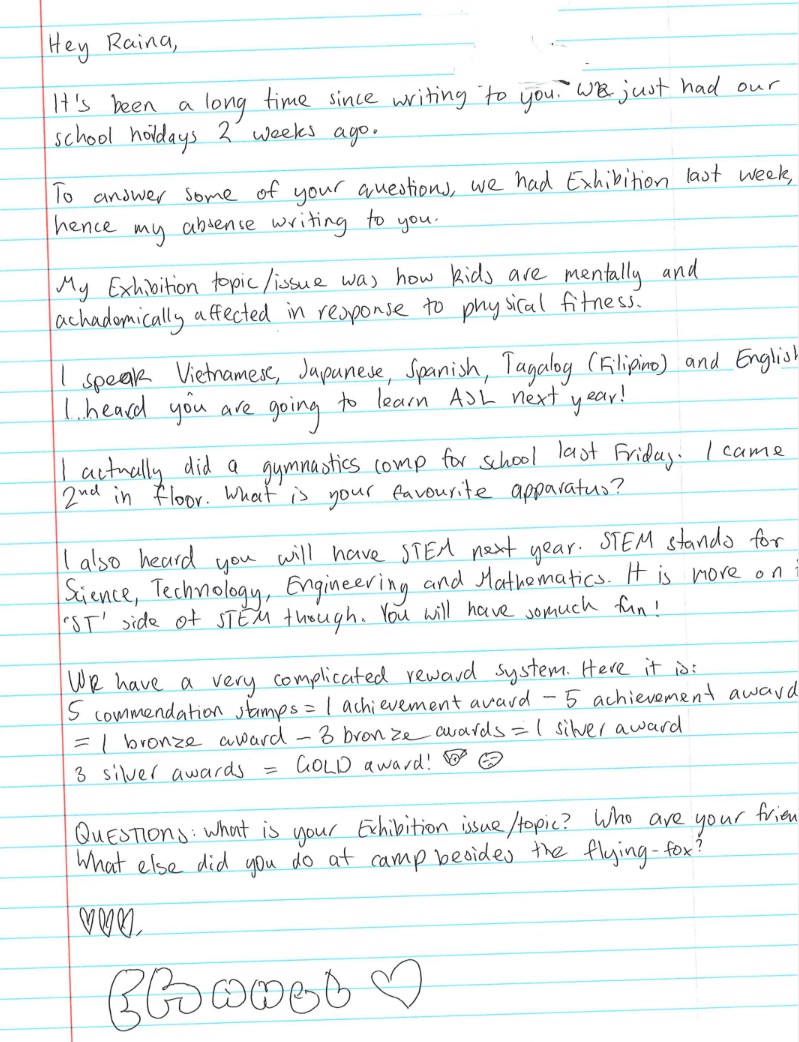 Hey Raina,
It's been a long time since writing to you. We just had our
school holidays 2 weeks ago.
To answer some of your questions, we had Exhibition last week,
hence my absense writing to you.
My Exhibition topic/issue was how kids are mentally and
achadomically affected in response to physical fitness.
I speak Vietnamese, Japanese, Spanish, Tagalog (Filipino) and English
I heard you are going to learn ASL next year!
I actually did a gymnastics comp for school last Friday. I came
2nd in floor. What is your favourite apparatus?
I also heard you will have STEM next year. STEM stands for
Science, Technology, Engineering and Mathematics. It is more on
'ST' side of STEM though. You will have somuch fun!
We have a very complicated reward system. Here it is:
5 commendation stamps = 1 achievement award - 5 achievement award
= 1 bronze award - 3 bronze awards = 1 silver award
3 silver awards = GOLD award!
QUESTIONS: What is your Exhibition issue/topic? Who are your frien
What else did you do at camp besides the flying-fox?